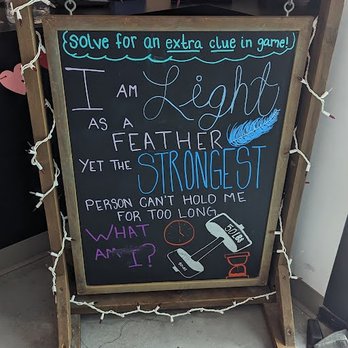 {Solve for an extra clue in game!}
I AM Light
AS A
FEATHER
YET THE STRONGEST
PERSON CAN'T HOLD ME
FOR TOO LONG
WHAT
AM I?